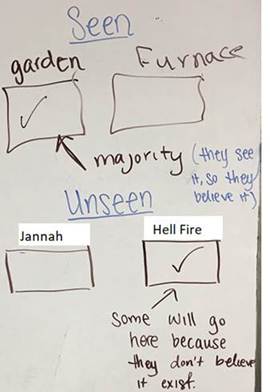 Seen
garden Furnace
majority (they see
it, so they
believe it)
Unseen
Jannah Hell Fire
Some will go
here because
they don't believe
it exist.